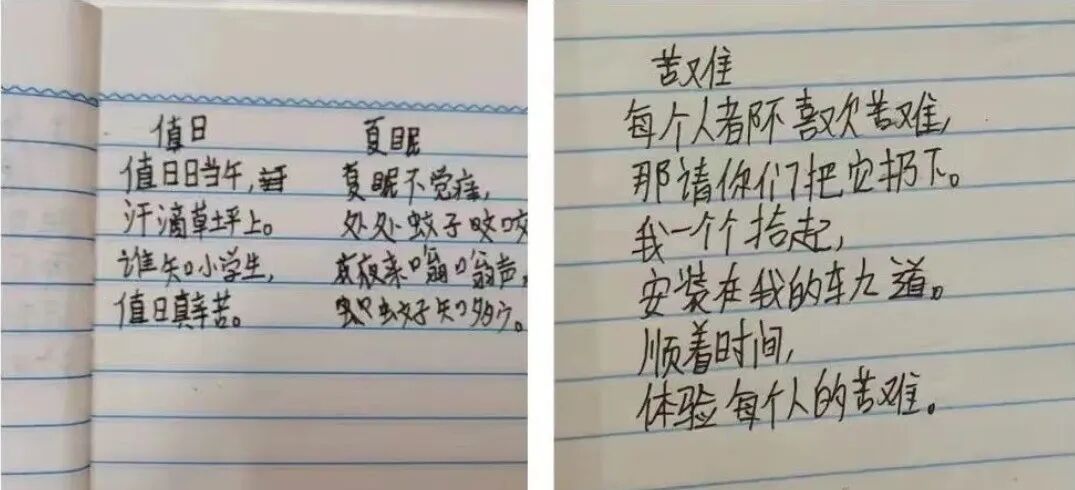 值日
值日日当午,
汗滴草坪上。
谁知小学生,
值日真辛苦。
夏眠
夏眠不觉痒,
处处蚊子咬咬
夜夜来嗡嗡声,
蚊子知多少。
苦难
每个人都不喜欢苦难,
那请你们把它扔下。
我一个个拾起,
安装在我的轨道。
顺着时间,
体验每个人的苦难。